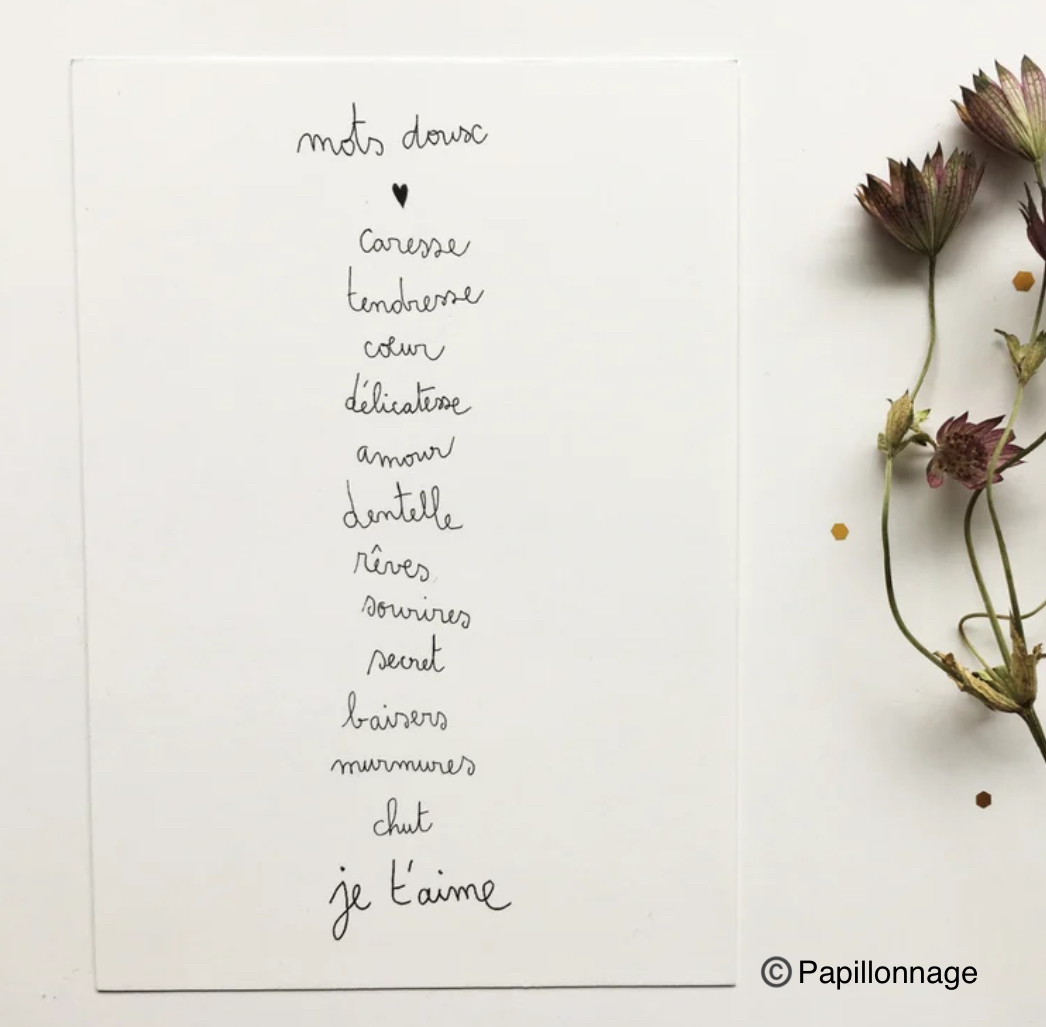 mots doux
♥
caresse
tendresse
cœur
délicatesse
amour
dentelle
rêves
sourires
secret
baisers
murmures
chut
je t'aime
© Papillonnage